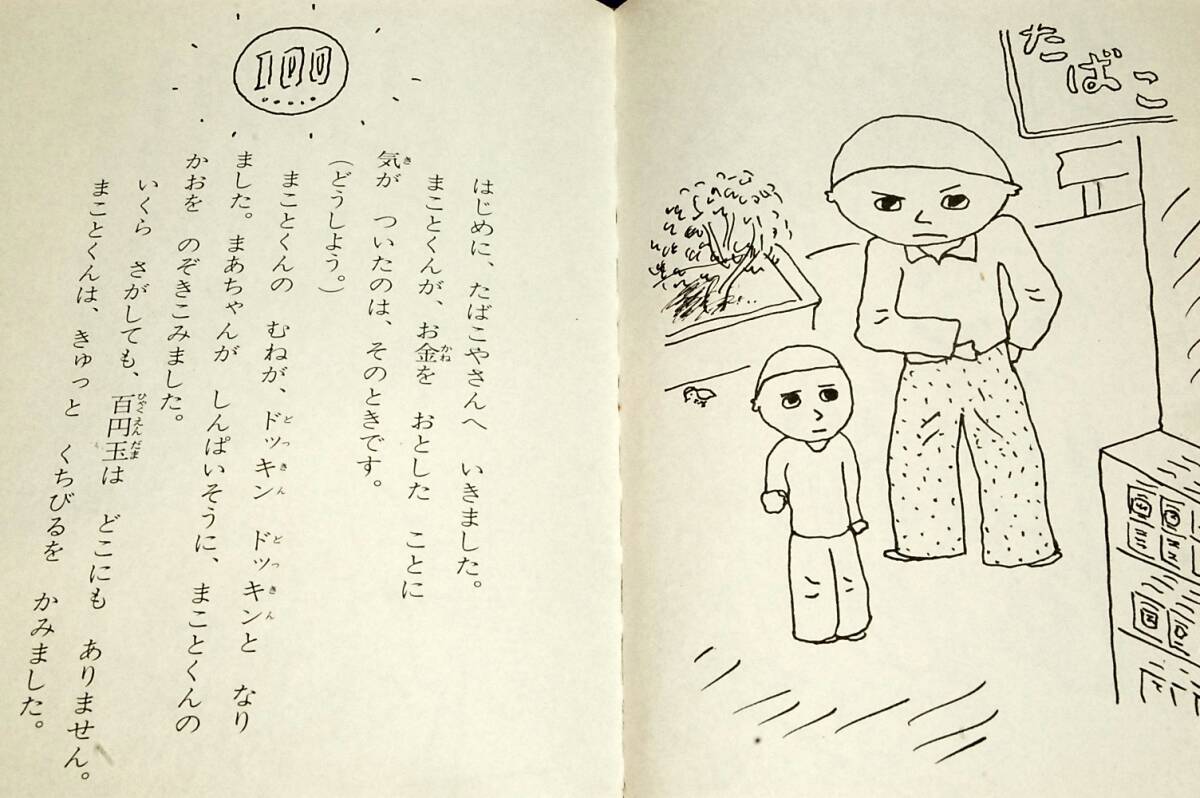 たばこ
100
はじめに、たばこやさんへ いきました。
まことくんが、お金を おとした ことに
気が ついたのは、そのときです。
(どうしよう。)
まことくんの むねが、ドッキン ドッキンと なり
ました。まあちゃんが しんぱいそうに、まことくんの
かおを のぞきこみました。
いくら さがしても、百円玉は どこにも ありません。
まことくんは、きゅっと くちびるを かみました。